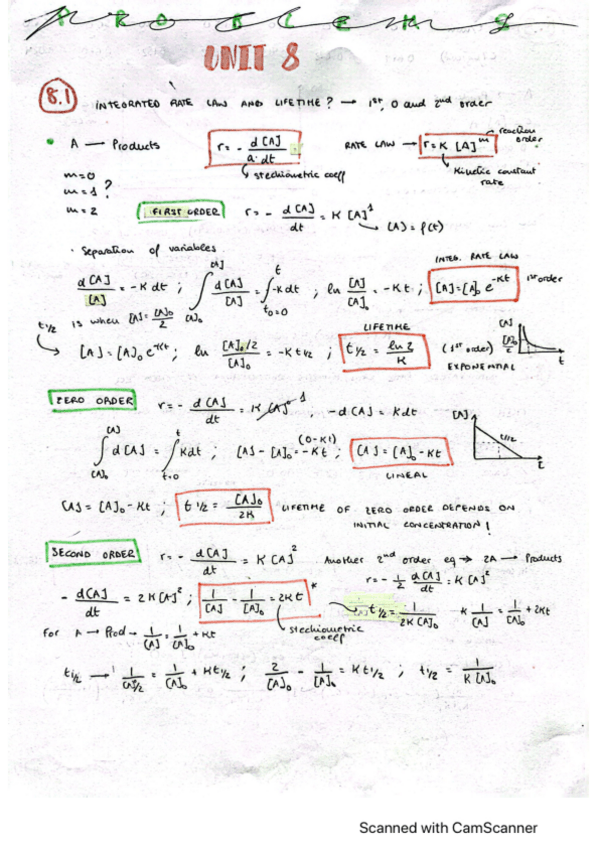 PROBLEMS
UNIT 8
8.1 INTEGRATED RATE LAW AND LIFETIME? → 1st, 0 and 2nd order
• A → Products r = - d[A] / a·dt RATE LAW → r = K [A]^m → reaction order
↳ stechiometric coeff Kinetic constant rate
m=0
m=1 ?
m=2 FIRST ORDER r = - d[A]/dt = K [A]^1 → [A] = f(t)
· Separation of variables
INTEG. RATE LAW
d[A]/[A] = -K dt ; ∫_{[A]0}^{[A]} d[A]/[A] = ∫_{t0=0}^{t} -K dt ; ln [A]/[A]0 = -Kt ; [A] = [A]0 e^{-Kt} 1st order
t1/2 is when [A] = [A]0/2
LIFETIME
→ [A] = [A]0 e^{-Kt} ; ln ([A]0/2)/[A]0 = -K t1/2 ; t1/2 = ln 2/K (1st order) EXPONENTIAL
[A] [A]0/2 t
ZERO ORDER r = - d[A]/dt = K [A]^0 1 ; -d[A] = Kdt
∫_{[A]0}^{[A]} d[A] = ∫_{t=0}^{t} Kdt ; [A] - [A]0 = -Kt ; [A] = [A]0 - Kt
LINEAL
[A] t1/2 t
[A] = [A]0 - Kt ; t1/2 = [A]0/2K LIFETIME OF ZERO ORDER DEPENDS ON
INITIAL CONCENTRATION!
SECOND ORDER r = - d[A]/dt = K [A]^2 Another 2nd order eq → 2A → Products
r = - 1/2 d[A]/dt = K [A]^2
- d[A]/dt = 2K[A]^2 ; 1/[A] - 1/[A]0 = 2Kt * → t1/2 = 1/2K[A]0 1/[A] = 1/[A]0 + 2Kt
↳ stechiometric coeff
For A → Prod → 1/[A] = 1/[A]0 + Kt
t1/2 → 1/([A]0/2) = 1/[A]0 + K t1/2 ; 2/[A]0 - 1/[A]0 = K t1/2 ; t1/2 = 1/K[A]0
Scanned with CamScanner